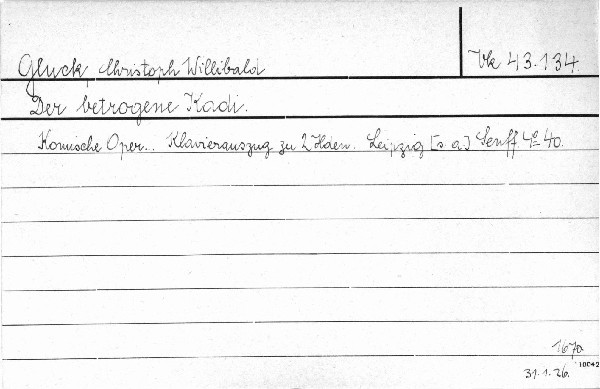 Gluck, Christoph Willibald
Vk 43.134.
Der betrogene Kadi.
Komische Oper.. Klavierauszug zu 2 Hden. Leipzig [s. a.] Senff. 4º 40.
167a
31.1.26.
10042